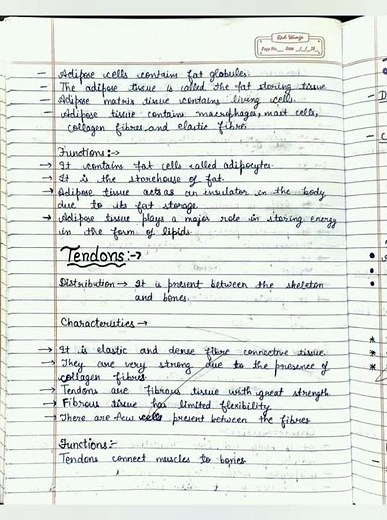 Page No. Date
- Adipose cells contains fat globules.
- The adipose tissue is called the fat storing tissue
- Adipose matrix tissue contains living cells.
- Adipose tissue contains macrophages, mast cells,
collagen fibres and elastic fibres
Functions:→
→ It contains fat cells called adipocytes.
→ It is the storehouse of fat.
→ Adipose tissue acts as an insulator in the body
due to its fat storage
→ Adipose tissue plays a major role in storing energy
in the form of lipids
Tendons:→
Distribution → It is present between the skeleton
and bones.
Characteristics →
→ It is elastic and dense fibre connective tissue.
→ They are very strong due to the presence of
collagen fibres
→ Tendons are fibrous tissue with great strength
→ Fibrous tissue has limited flexibility
→ There are few cells present between the fibres
Functions:-
Tendons connect muscles to bones